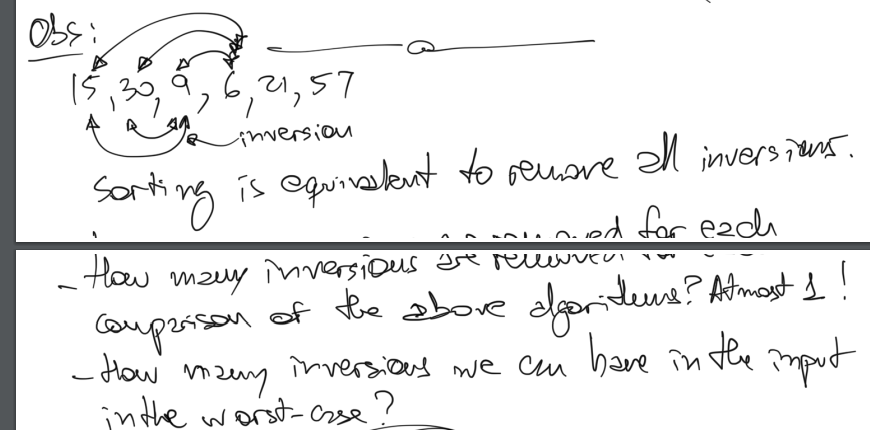 Obs:
15, 30, 9, 6, 21, 57
inversion
Sorting is equivalent to remove all inversions.
removed for each
- How many inversions are removed for
comparison of the above algorithms? Atmost 1!
- How many inversions we can have in the input
in the worst-case?